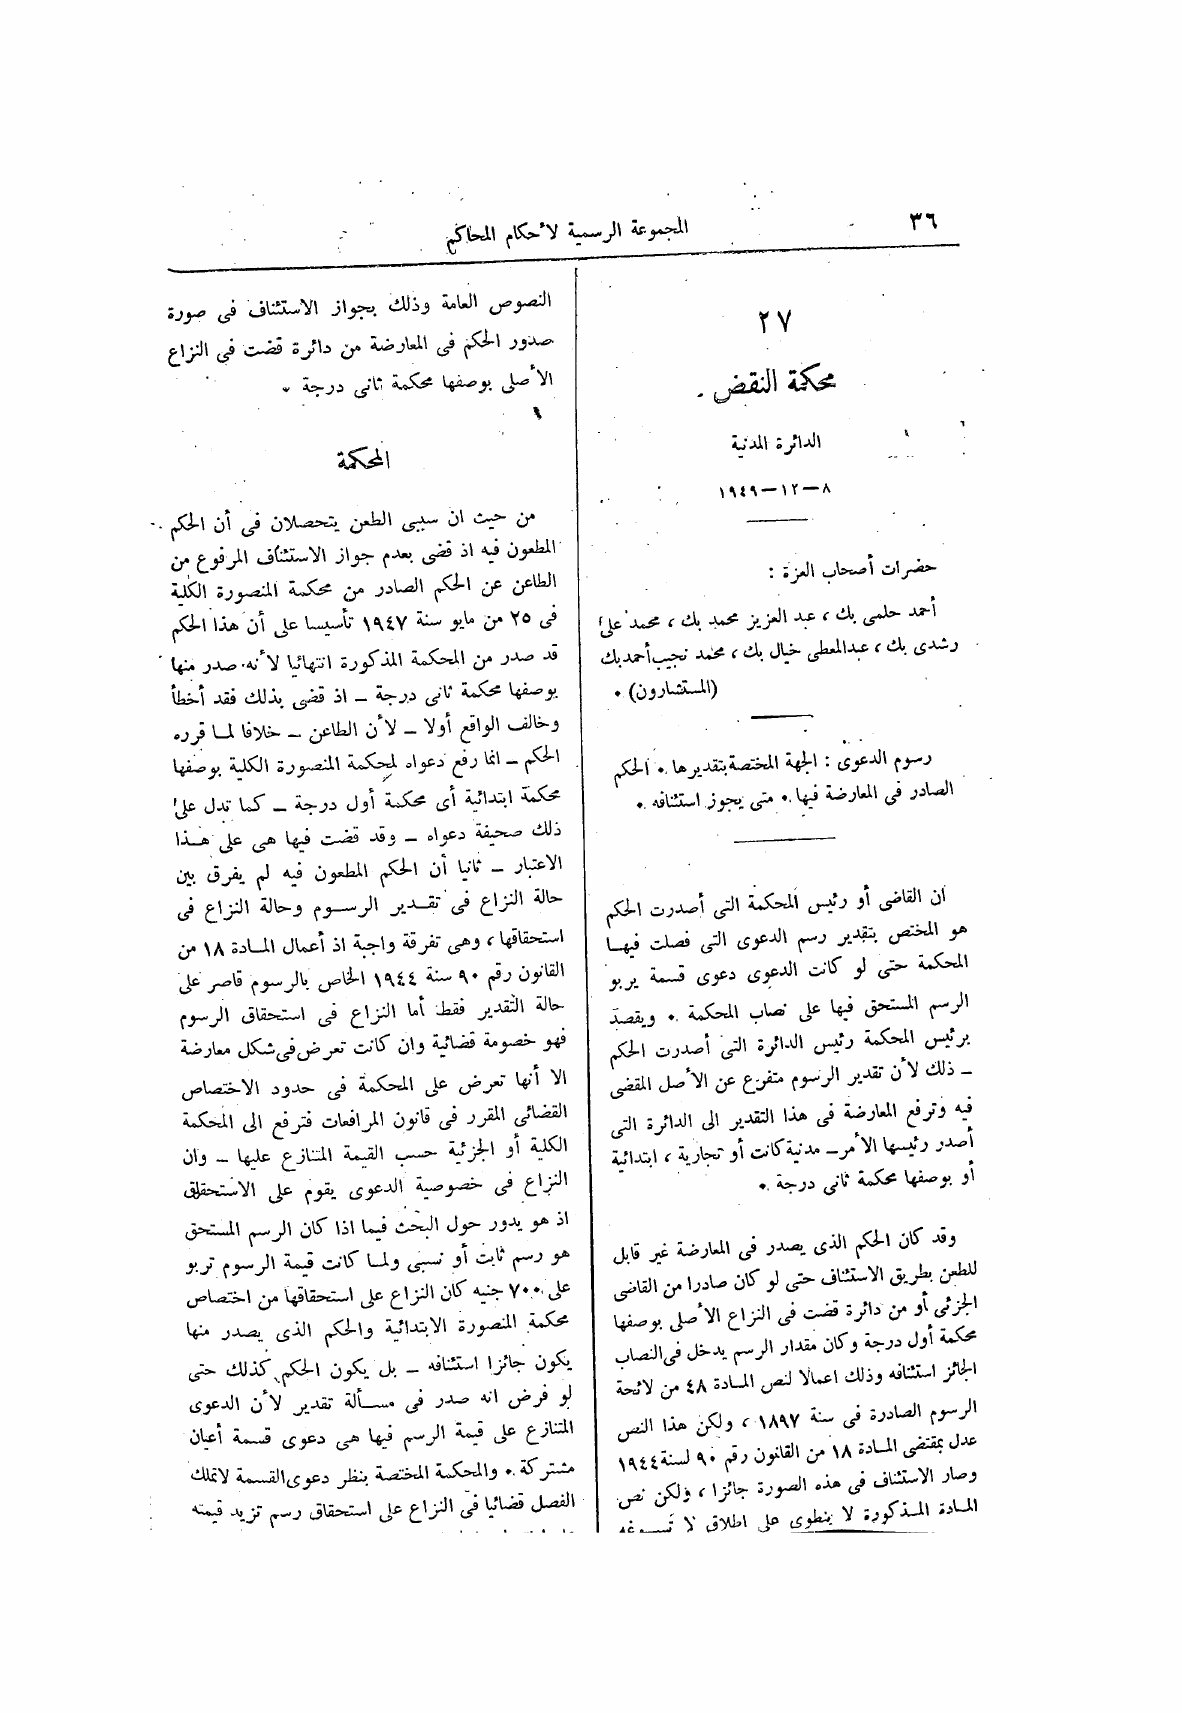 ٣٦
المجموعة الرسمية لأحكام المحاكم
٢٧
محكمة النقض
الدائرة المدنية
٨-١٢-١٩٤٩
حضرات أصحاب العزة :
أحمد حلمى بك ، عبد العزيز محمد بك ، محمد على
رشدى بك ، عبدالمعطى خيال بك ، محمد نجيب أحمد بك
(المستشارون) .
رسوم الدعوى : الجهة المختصة بتقديرها . الحكم
الصادر فى المعارضة فيها . متى يجوز استئنافه .
ان القاضى أو رئيس المحكمة التى أصدرت الحكم
هو المختص بتقدير رسم الدعوى التى فصلت فيهـا
المحكمة حتى لو كانت الدعوى دعوى قسمة يربو
الرسم المستحق فيها على نصاب المحكمة . ويقصد
برئيس المحكمة رئيس الدائرة التى أصدرت الحكم
– ذلك لأن تقدير الرسوم متفرع عن الأصل المقضى
فيه وترفع المعارضة فى هذا التقدير الى الدائرة التى
أصدر رئيسها الأمر – مدنية كانت أو تجارية ، ابتدائية
أو بوصفها محكمة ثانى درجة .
وقد كان الحكم الذى يصدر فى المعارضة غير قابل
للطعن بطريق الاستئناف حتى لو كان صادرا من القاضى
الجزئى أو من دائرة قضت فى النزاع الأصلى بوصفها
محكمة أول درجة وكان مقدار الرسم يدخل فى النصاب
الجائز استئنافه وذلك اعمالا لنص المـادة ٤٨ من لائحة
الرسوم الصادرة فى سنة ١٨٩٧ ، ولكن هذا النص
عدل بمقتضى المـادة ١٨ من القانون رقم ٩٠ لسنة ١٩٤٤
وصار الاستئناف فى هذه الصورة جائزا ، ولكن نص
المادة المـذكورة لا ينطوى على اطلاق لا تسـوغه
النصوص العامة وذلك بجواز الاستئناف فى صورة
صدور الحكم فى المعارضة من دائرة قضت فى النزاع
الأصلى بوصفها محكمة ثانى درجة .
المحكمة
من حيث ان سببى الطعن يتحصلان فى أن الحكم
المطعون فيه اذ قضى بعدم جواز الاستئناف المرفوع من
الطاعن عن الحكم الصادر من محكمة المنصورة الكلية
فى ٢٥ من مايو سنة ١٩٤٧ تأسيسا على أن هذا الحكم
قد صدر من المحكمة المذكورة انتهائيا لأنه صدر منها
بوصفها محكمة ثانى درجة – اذ قضى بذلك فقد أخطأ
وخالف الواقع أولا – لأن الطاعن – خلافا لمـا قرره
الحكم – انما رفع دعواه لمحكمة المنصورة الكلية بوصفها
محكمة ابتدائية أى محكمة أول درجة – كما تدل على
ذلك صحيفة دعواه – وقد قضت فيها هى على هـذا
الاعتبار – ثانيا أن الحكم المطعون فيه لم يفرق بين
حالة النزاع فى تقـدير الرسـوم وحالة النزاع فى
استحقاقها ، وهى تفرقة واجبة اذ أعمال المـادة ١٨ من
القانون رقم ٩٠ سنة ١٩٤٤ الخاص بالرسوم قاصر على
حالة التقدير فقط أما النزاع فى استحقاق الرسوم
فهو خصومة قضائية وان كانت تعرض فى شكل معارضة
الا أنها تعرض على المحكمة فى حدود الاختصاص
القضائى المقرر فى قانون المرافعات فترفع الى المحكمة
الكلية أو الجزئية حسب القيمة المتنازع عليها – وان
النزاع فى خصوصية الدعوى يقوم على الاستحقاق
اذ هو يدور حول البحث فيما اذا كان الرسم المستحق
هو رسم ثابت أو نسبى ولمـا كانت قيمة الرسوم تربو
على ٧٠٠ جنيه كان النزاع على استحقاقها من اختصاص
محكمة المنصورة الابتدائية والحكم الذى يصدر منها
يكون جائزا استئنافه – بل يكون الحكم كذلك حتى
لو فرض انه صدر فى مسـألة تقدير لأن الدعوى
المتنازع على قيمة الرسم فيها هى دعوى قسمة أعيان
مشتركة . والمحكمة المختصة بنظر دعوى القسمة لا تملك
الفصل قضائيا فى النزاع على استحقاق رسم تزيد قيمته